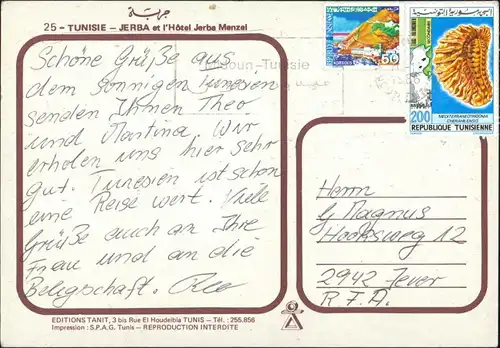 جربة
25 - TUNISIE - JERBA et l'Hôtel Jerba Menzel
Schöne Grüße aus
dem sonnigen Tunesien
senden Ihnen Theo
und Martina. Wir
erholen uns hier sehr
gut. Tunesien ist schon
eine Reise wert. Viele
Grüße auch an Ihre
Frau und an die
Belegschaft. Theo
Midoun-Tunisie
60
200
MEDITERRANEOTRIGONIA
CHERAHILENSIS
REPUBLIQUE TUNISIENNE
Herrn
G Magnus
Hooksweg 12
2942 Jever
R.F.A.
EDITIONS TANIT, 3 bis Rue El Houdeibia TUNIS - Tél. : 255.856
Impression : S.P.A.G. Tunis - REPRODUCTION INTERDITE